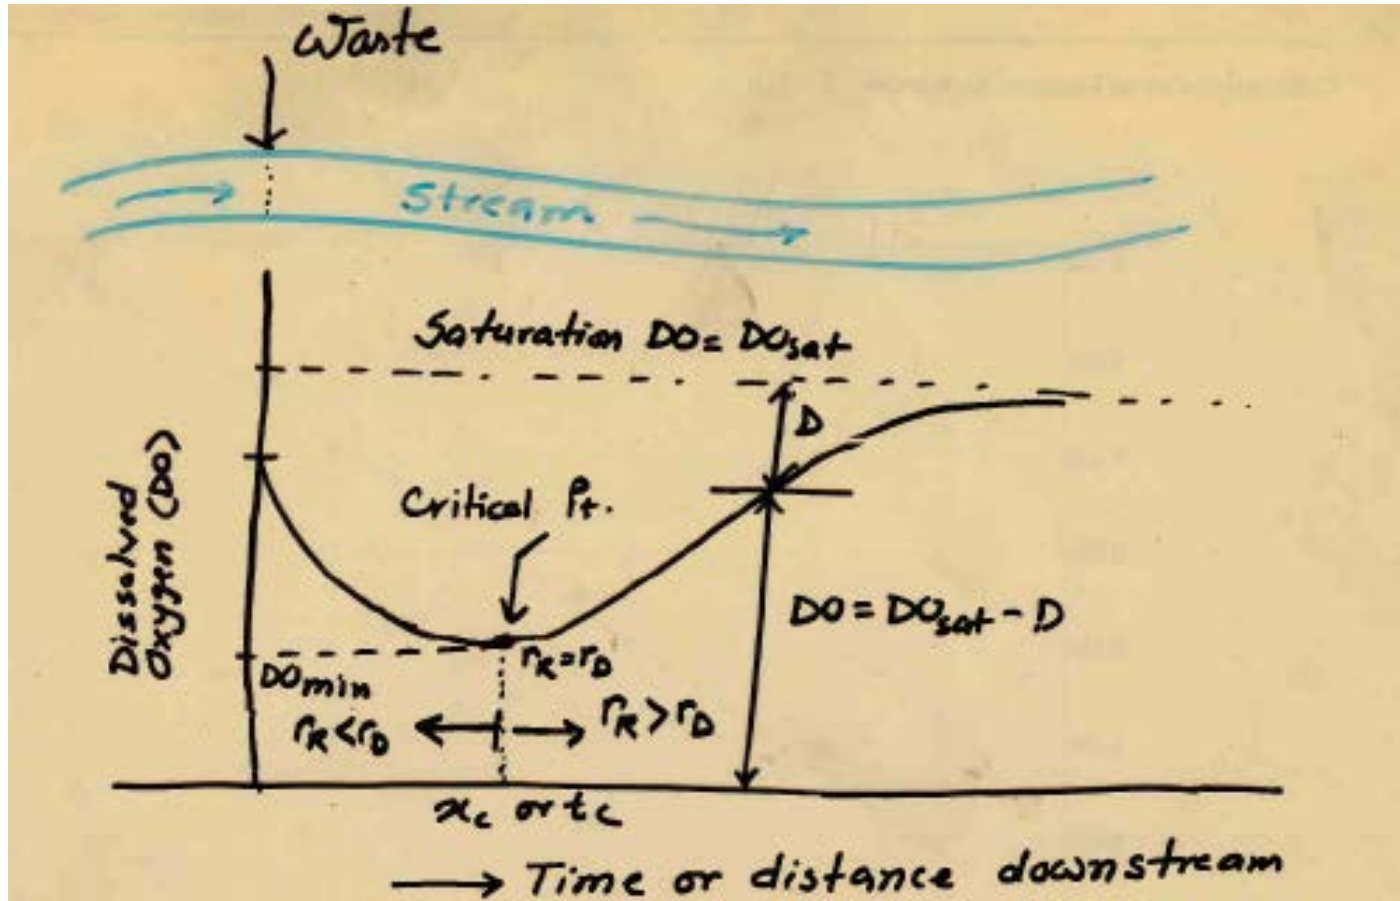 Waste
Stream
Saturation DO = DOsat
D
Critical Pt.
Dissolved
Oxygen (DO)
DO = DOsat - D
rR = rD
DOmin
rR < rD
rR > rD
xc or tc
Time or distance downstream